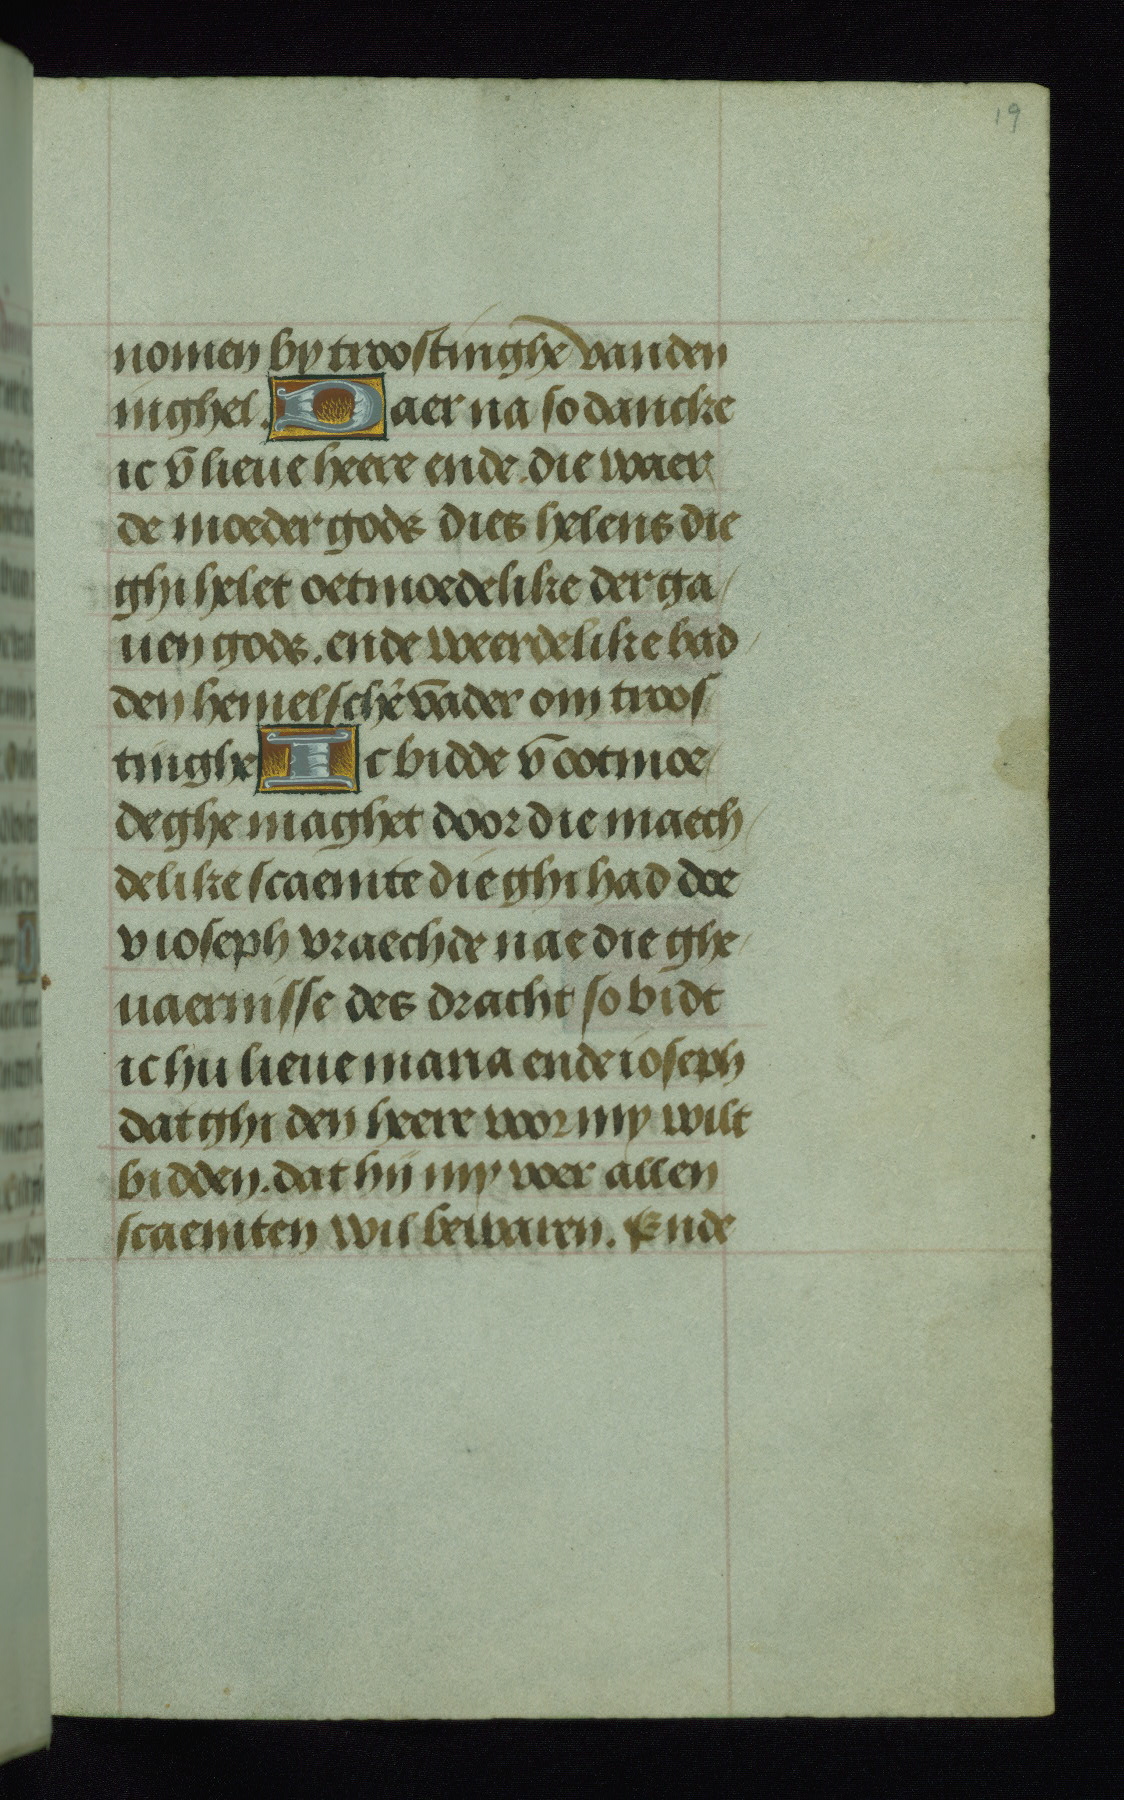 19
nomen by troostinghe vanden
inghel. Daer na so dancke
ic v̄ lieue heere ende die waer
de moeder gods dies helens die
ghi helet oetmoedelike der ga/
uen gods. ende weerdelike bad/
den hemelschē vader om troos
tinghe Ic bidde v̄ ootmoe/
deghe maghet door die maech/
delike scaemte die ghi had doe
v ioseph vraechde nae die ghe/
uaernisse des dracht so bidt
ic hu lieue maria ende ioseph
dat ghi den heere voor my wilt
bidden. dat hij my voer allen
scaemten wil bewaren. Ende